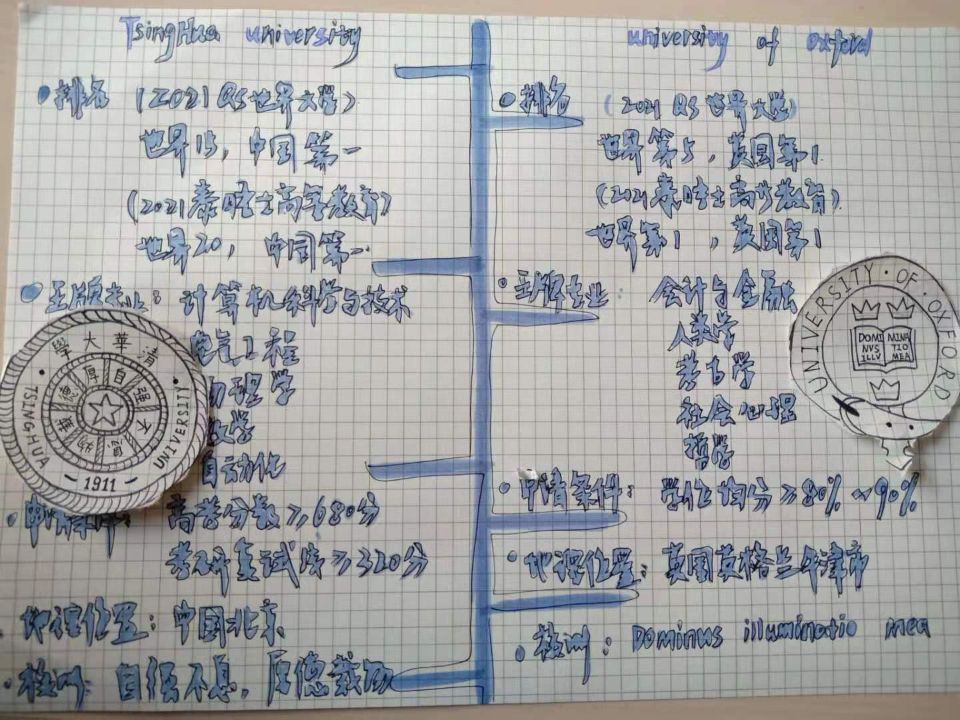 TsingHua university
排名 (2021 QS世界大学)
世界15, 中国第一
(2021泰晤士高等教育)
世界20, 中国第一
王牌专业: 计算机科学与技术
电气工程
物理学
数学
自动化
高考分数≥680分
考研复试线≥320分
地理位置: 中国北京
校训: 自强不息, 厚德载物
清華大學
自强不息
厚德載物
TSINGHUA UNIVERSITY
1911
university of oxford
排名 (2021 QS世界大学)
世界第5, 英国第1
(2021泰晤士高等教育)
世界第1, 英国第1
王牌专业: 会计与金融
人类学
考古学
社会心理
哲学
申请条件: 学位均分≥80%~90%
地理位置: 英国英格兰牛津市
校训: Dominus illuminatio mea
UNIVERSITY OF OXFORD
DOMI NVS ILLV
MINA TIO MEA